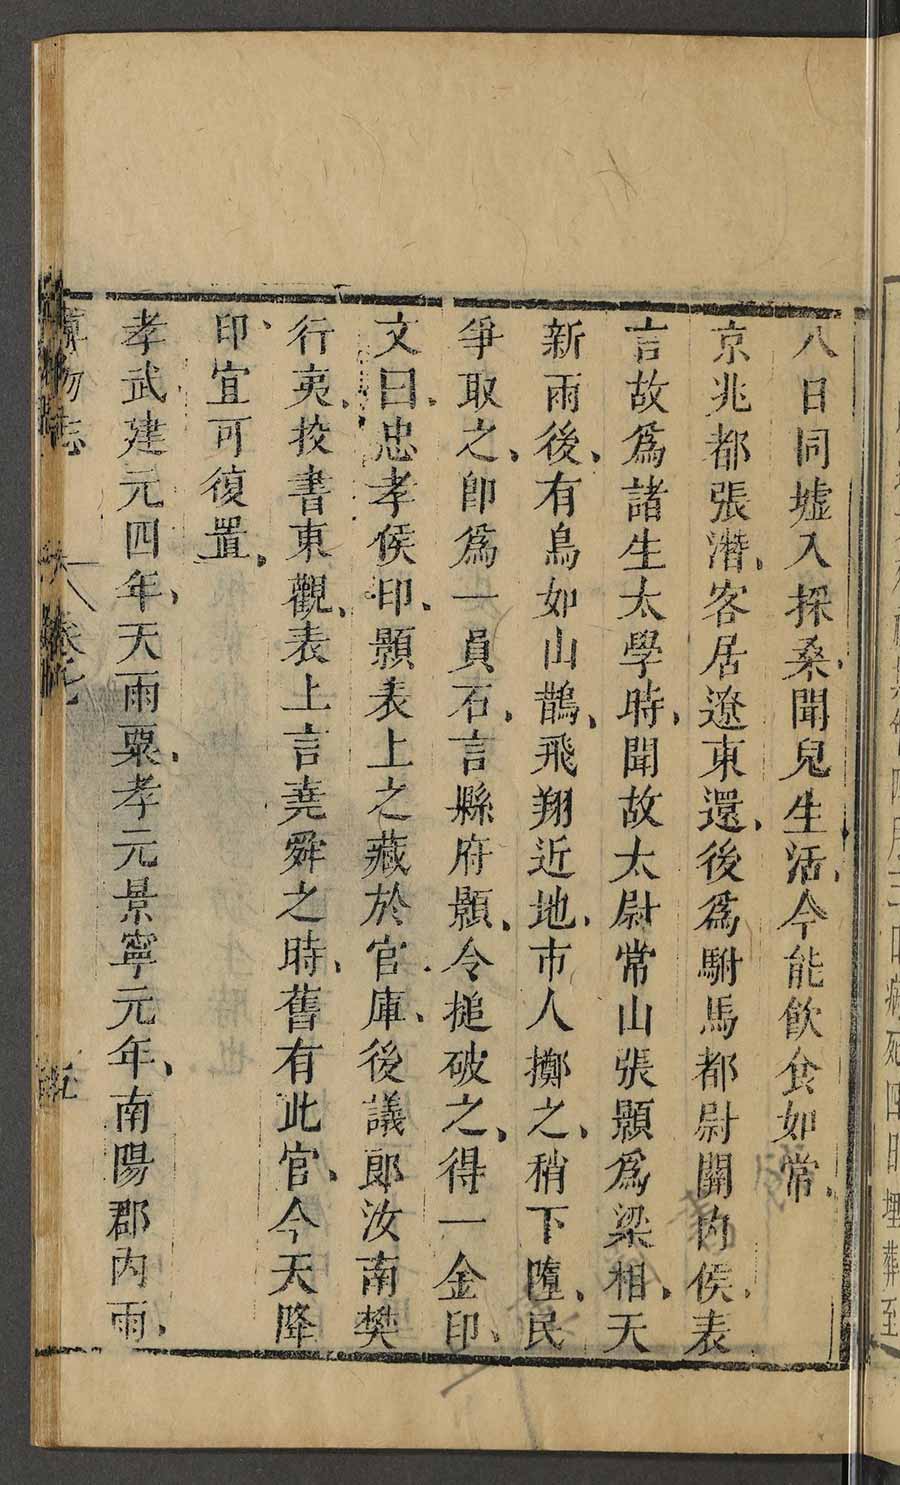 八日同墟入採桑聞兒生活今能飲食如常
京兆都張潛客居遼東還後爲駙馬都尉關內侯表
言故爲諸生太學時聞故太尉常山張顥爲梁相天
新雨後有鳥如山鵲飛翔近地市人擲之稍下墮民
爭取之卽爲一員石言縣府顥令搥破之得一金印
文曰忠孝侯印顥表上之藏於官庫後議郎汝南樊
行夷挍書東觀表上言堯舜之時舊有此官今天降
印宜可復置
孝武建元四年天雨粟孝元景寧元年南陽郡內雨
志
卷七
五
病死四日埋葬至